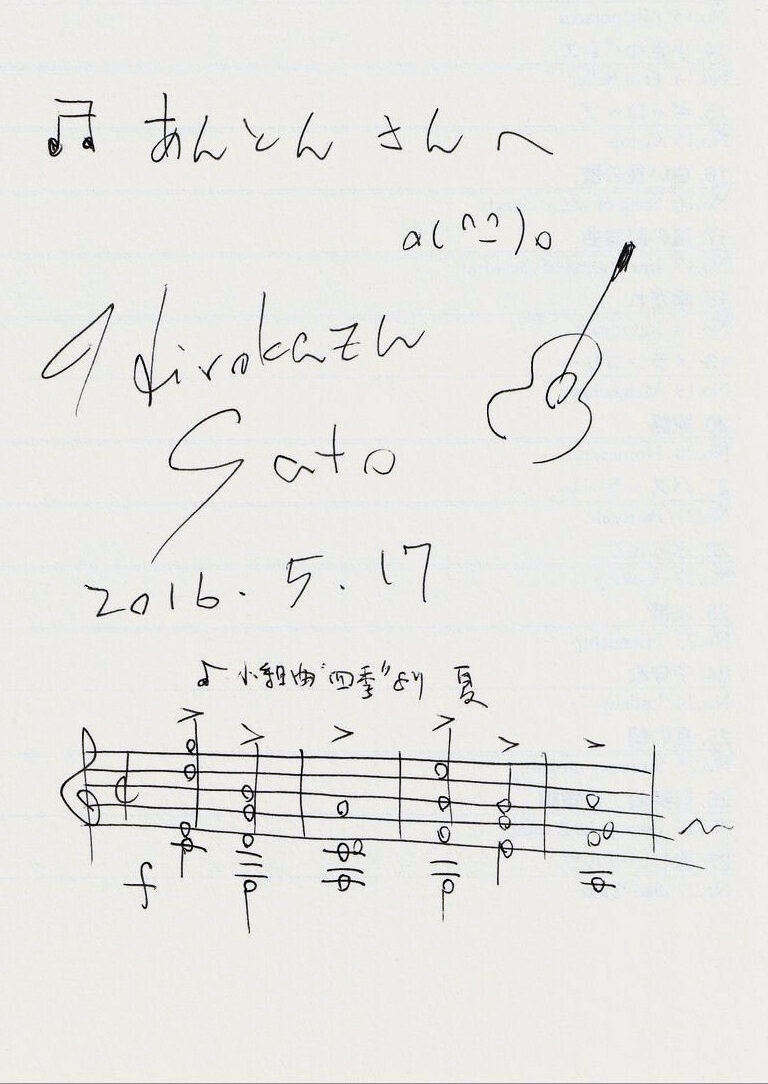 ♫ あんとん さんへ
o(^-^)o
Hirokazu
Sato
2016. 5. 17
♪ 小組曲"四季"より 夏
f